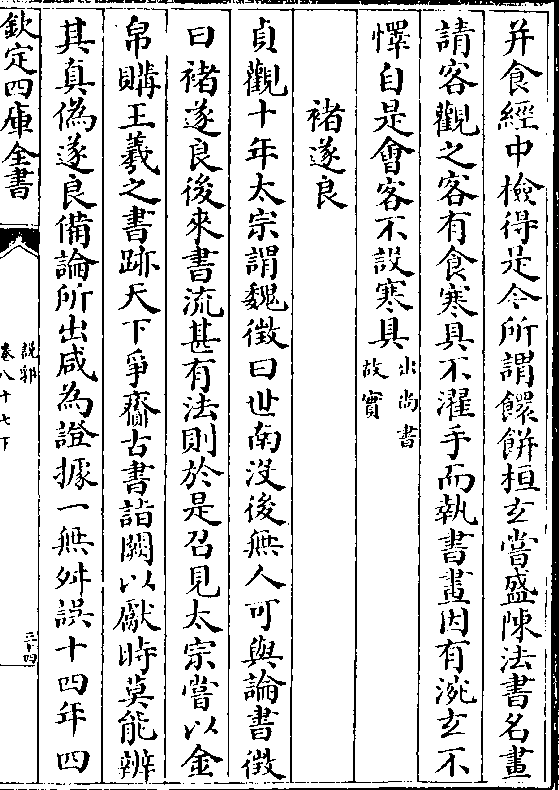 并食經中檢得是今所謂饊餅桓玄嘗盛陳法書名畫
請客觀之客有食寒具不濯手而執書畫因有涴玄不
懌自是會客不設寒具出尚書故實
褚遂良
貞觀十年太宗謂魏徵曰世南沒後無人可與論書徵
曰褚遂良後來書流甚有法則於是召見太宗嘗以金
帛購王羲之書跡天下爭齎古書詣闕以獻時莫能辨
其真偽遂良備論所出咸為證據一無舛誤十四年四
欽定四庫全書
說郛
卷八十七下
三十四